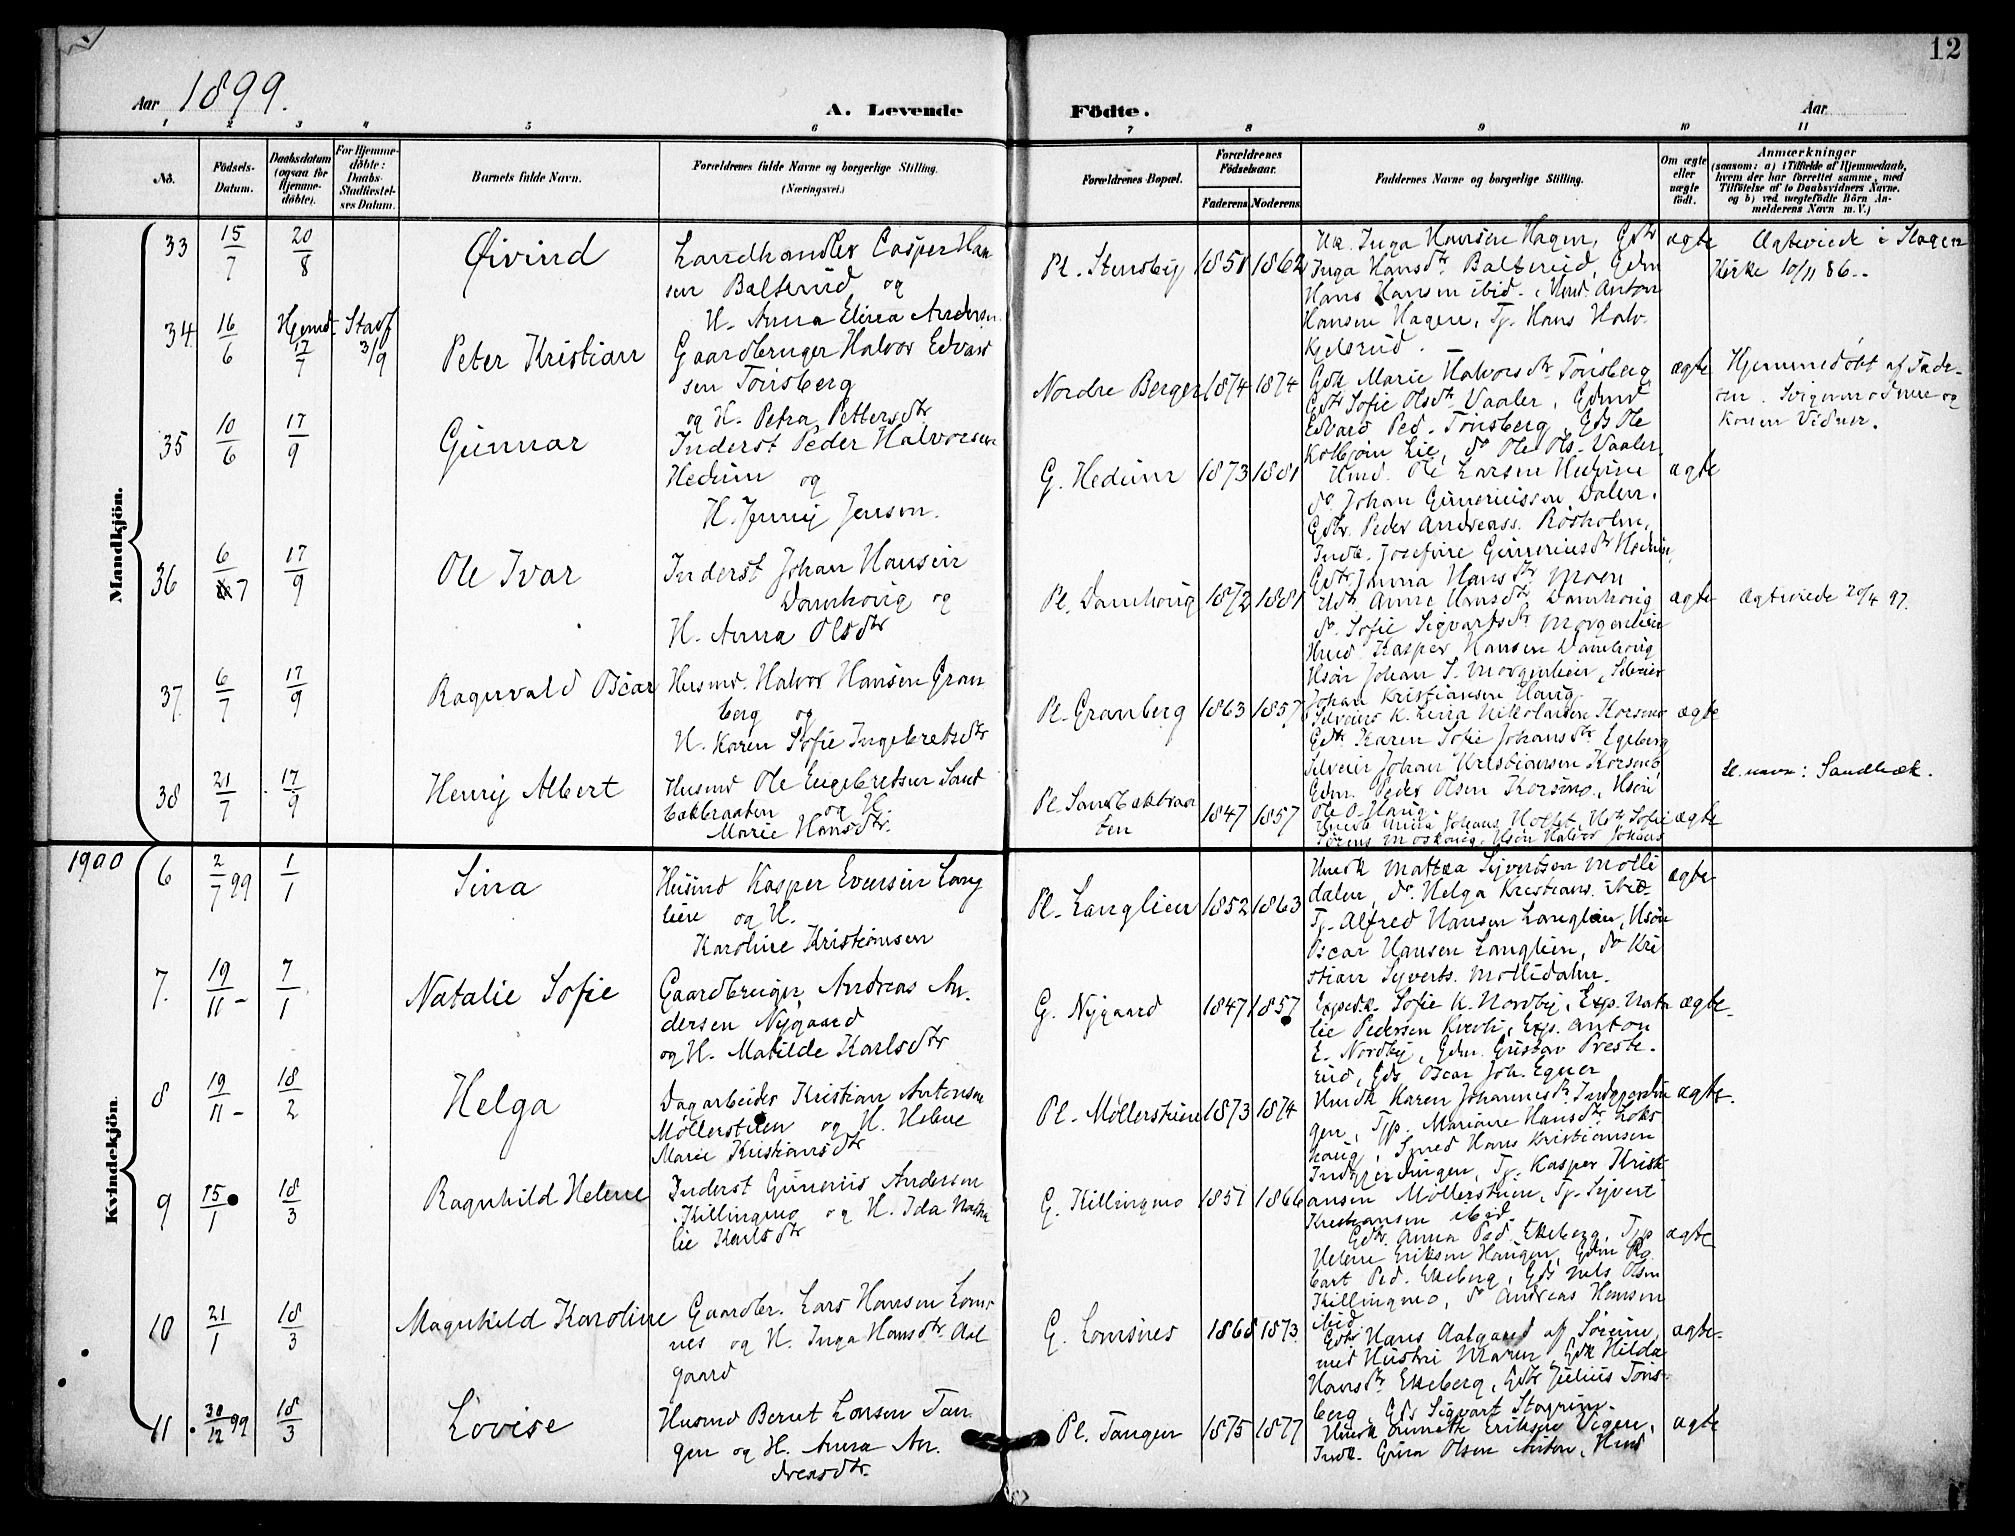 12
Aar 1899.
A. Levende Födte.
Aar
1 2 3 4 5 6 7 8 9 10 11
Nò.
Födsels-Datum.
Daabsdatum (ogsaa for Hjemme-döbte).
For Hjemme-döbte: Daabs-Stadfæstel-ses Datum.
Barnets fulde Navn.
Forældrenes fulde Navne og borgerlige Stilling. (Næringsvei.)
Forældrenes Bopæl.
Forældrenes Födselsaar.
Faderens Moderens
Faddernes Navne og borgerlige Stilling.
Om ægte eller uægte födt.
Anmærkninger
(saasom: a) i Tilfælde af Hjemmedaab,
hvem der har forrettet samme, med
Tilföielse af to Daabsvidners Navne,
og b) ved uægtefödte Börn An-
melderens Navn m. V.)
Mandkjön.
33 15/7 20/8 Øivind
Landhandler Casper Han
sen Balterud og
H. Anna Elina Andersen
Pl. Stensby 1851 1862
Hans Hansen ibid. Und. Anton
Hansen Hagen, Tj. Hans Halv.
Kjelsrud.
ægte
Ægteviede i Slagen
Kirke 10/11 86.
34 16/6 Hjemd. 17/7 Stadf 3/9 Peter Kristian
Gaardbruger Halvor Edvard
sen Tönsberg
og H. Petra Pettersdtr
Nordre Berger 1874 1874
Gdk Marie Halvorsdtr Tönsberg,
Gdtr Sofie Olsdtr Vaaler, Gdmd
Edvard Ped. Tönsberg, Gds Ole
Kolbjörn Lie, do Ole Ols. Vaaler
ægte
Hjemmedöbt af Fade-
ren. Svigermoderen og
Konen Vidner.
35 10/6 17/9 Gunnar
Inderst Peder Halvorsen
Hedum og
H. Jenny Jensen.
G. Hedum 1873 1881
Ole Larsen Hedum
do Johan Guneriussen Dalen.
Gdbr. Peder Andreass. Rösholm,
Indk. Josefine Guneriusdtr Hedum,
Gdtr Janna Hansdtr Moen
ægte
36 6/7 17/9 Ole Ivar
Inderst Johan Hansen
Damhoug og
H. Anna Olsdtr
Pl. Damhoug 1872 1881
Anne Hansdtr Damhoug
do. Sofie Sigvartsdtr Morgenlien
Hmd. Kasper Hansen Damhoug
Hsön Johan S. Morgenlien, Selveier
Johan Kristiansen Haug.
ægte
Ægteviede 20/4 97.
37. 6/7 17/9 Ragnvald Oscar
Husmd. Halvor Hansen Gran
berg og
H. Karen Sofie Ingebretsdtr
Pl. Granberg 1863 1857
Selveiers K. Lina Nikolaisen Korsmo
Gdtr Karen Sofie Johansdtr Egeberg
Selveier Johan Kristiansen Korsmo,
Gdm. Peder Olsen Korsmo, Hsön
Ole O. Haug.
ægte
38 21/7 17/9 Henry Albert
Husmd Ole Engebretsen Sand
bækbraaten og H.
Marie Hansdtr.
Pl. Sandbækbraa
ten 1847 1857
ægte
Sl. navn: Sandbæk.
1900
Kvindekjön.
6 2/7 99 1/1 Sina
Husmd Kasper Evensen Lang
lien og H.
Karoline Kristiansen
Pl. Langlien 1852 1863
Hmdk Mattea Syvertsen Molli
dalen, do Helga Kristians. ibid.
Tj. Alfred Hansen Langlien, Hsön
Oscar Hansen Langlien, do Kri
stian Syverts. Mollidalen.
ægte
7. 19/11 - 7/1 Natalie Sofie
Gaardbruger Andreas An.
dersen Nygaard
og H. Matilde Karlsdtr
G. Nygaard 1847 1857
Expedk. Sofie K. Nordby, Exp. Nata
lie Pedersen Kveoli, Exp. Anton
E. Nordby, Gdm. Gustav Preste-
rud, Gds Oscar Joh. Egner
ægte.
8 19/11 - 18/2 Helga
Dagarbeider Kristian Antonsen
Möllerstuen og H. Helene
Marie Kristiansdtr
Pl. Møllerstuen 1873 1874
Hmdk Karen Johannesdtr Indgjerdin
gen, Tjp. Mariane Hansdtr Loks
haug, Smed Hans Kristiansen
Indgjerdingen, Tj. Kasper Kristi-
ansen Möllerstuen, Tj. Syvert
Kristiansen ibid.
ægte.
9 15/1 18/3 Ragnhild Helene
Inderst Gunerius Andersen
Killingmo og H. Ida Natha
lie Karlsdtr
G. Killingmo 1851 1866
Gdtr. Anna Ped. Ekeberg, Tjp
Helene Eriksen Haugen, Gdm Ro
bart Ped. Ekeberg, Gds Nels Olsen
Killingmo, do Andreas Hansen
ibid.
ægte
10 21/1 18/3 Magnhild Karoline
Gaardbr. Lars Hansen Loms
nes og H. Inga Hansdtr Aal
gaard
G. Lomsnes 1868 1873.
Gdbr Hans Aalgaard af Sörum,
med Hustru Maren, Gdk Hilda
Hansdtr Ekeberg, Gdbr Julius Töns-
berg, Gds Sigvart
ægte.
11 30/12 99 18/3 Lovise
Husmd Bernt Larsen Tan
gen og H. Anna An.
dreasdtr.
Pl. Tangen 1875 1877
Hmdk Annette Eriksen Vigen,
Indk. Gina Olsen Anton, Hmd
ægte